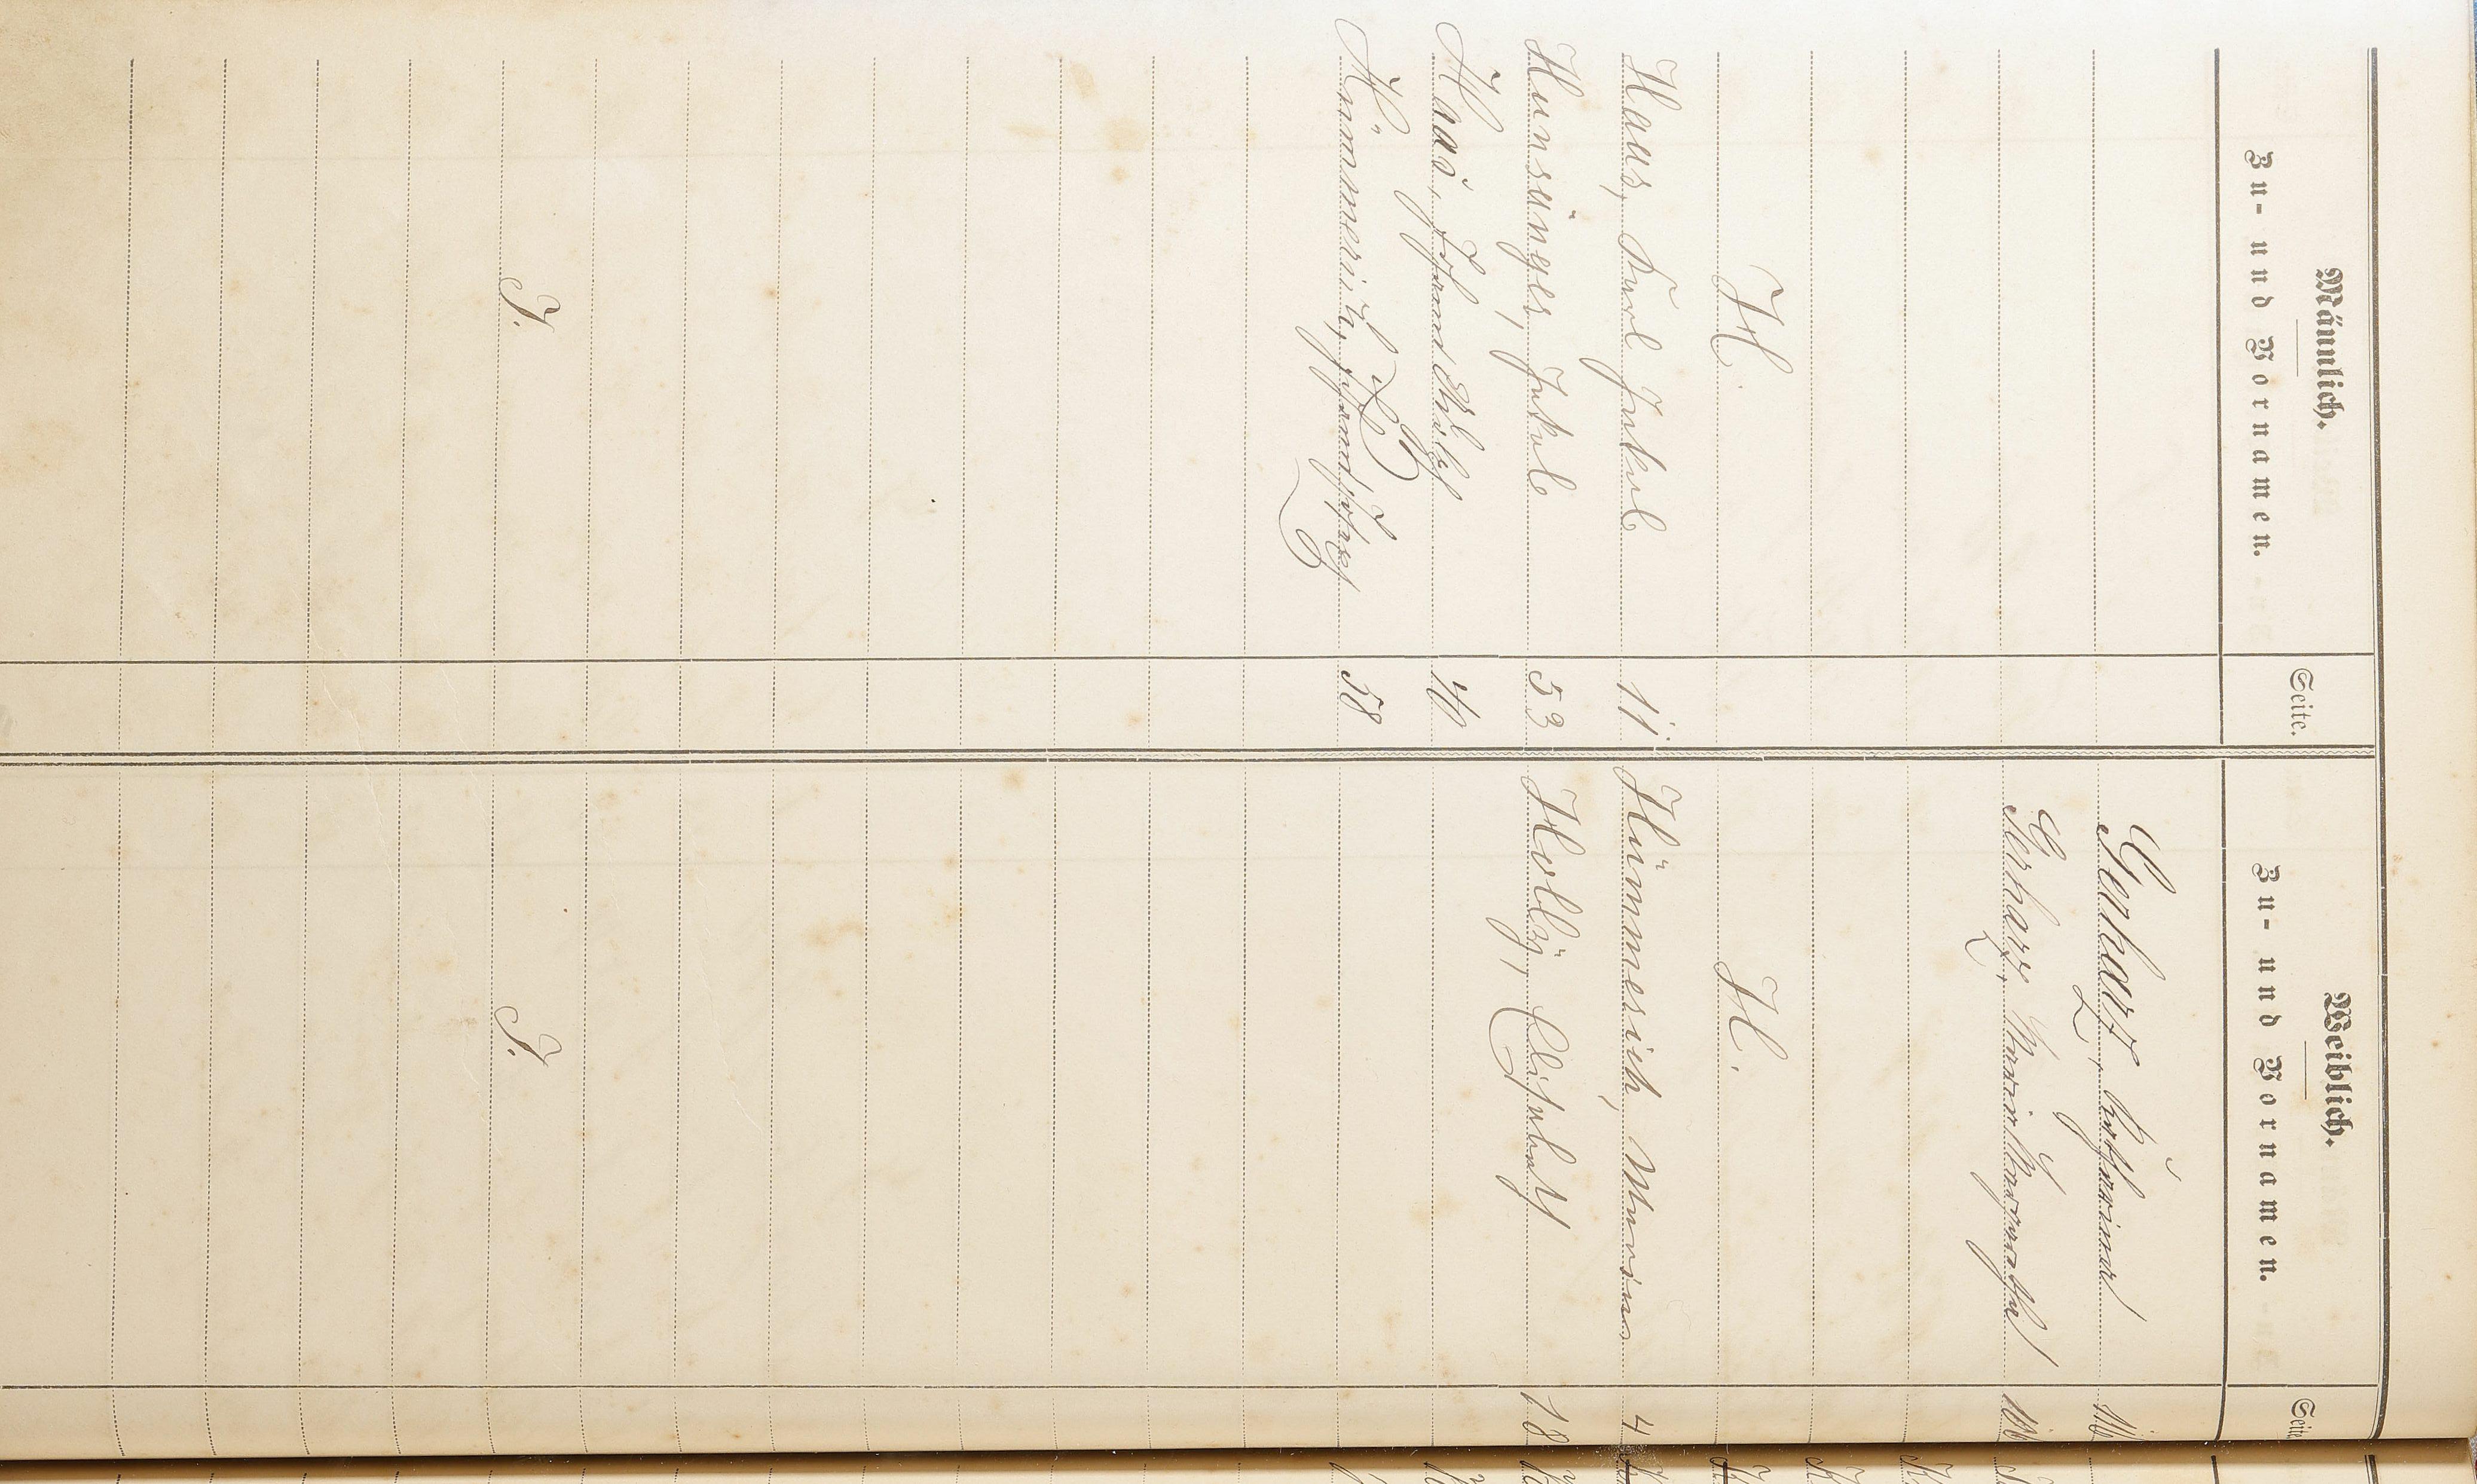 Männlich.
Zu- und Vornamen.
Seite.
H.
Haas, Karl Jakob 11.
Hunsänger, Jakob 53
Haas, Johann 40
Hümmerich, Johann Josef 58
J.
Weiblich.
Zu- und Vornamen.
Seite
Gerharz, Katharina
Gerharz, Maria Margaretha
H.
Hümmerich, Mariana 4
Holly, Elisabeth 18
J.